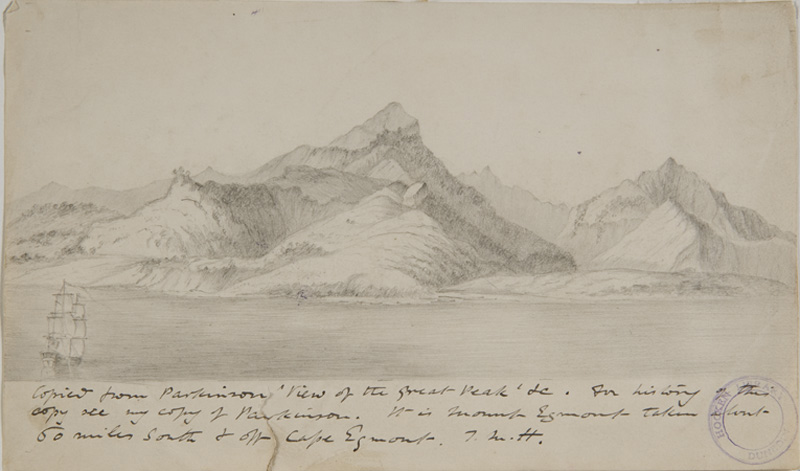 Copied from Parkinson 'View of the great Peak' &c. For history of this
copy see my copy of Parkinson. It is Mount Egmont taken about
60 miles South & off Cape Egmont. T.M.H.
HOCKEN LIBRARY
DUNEDIN